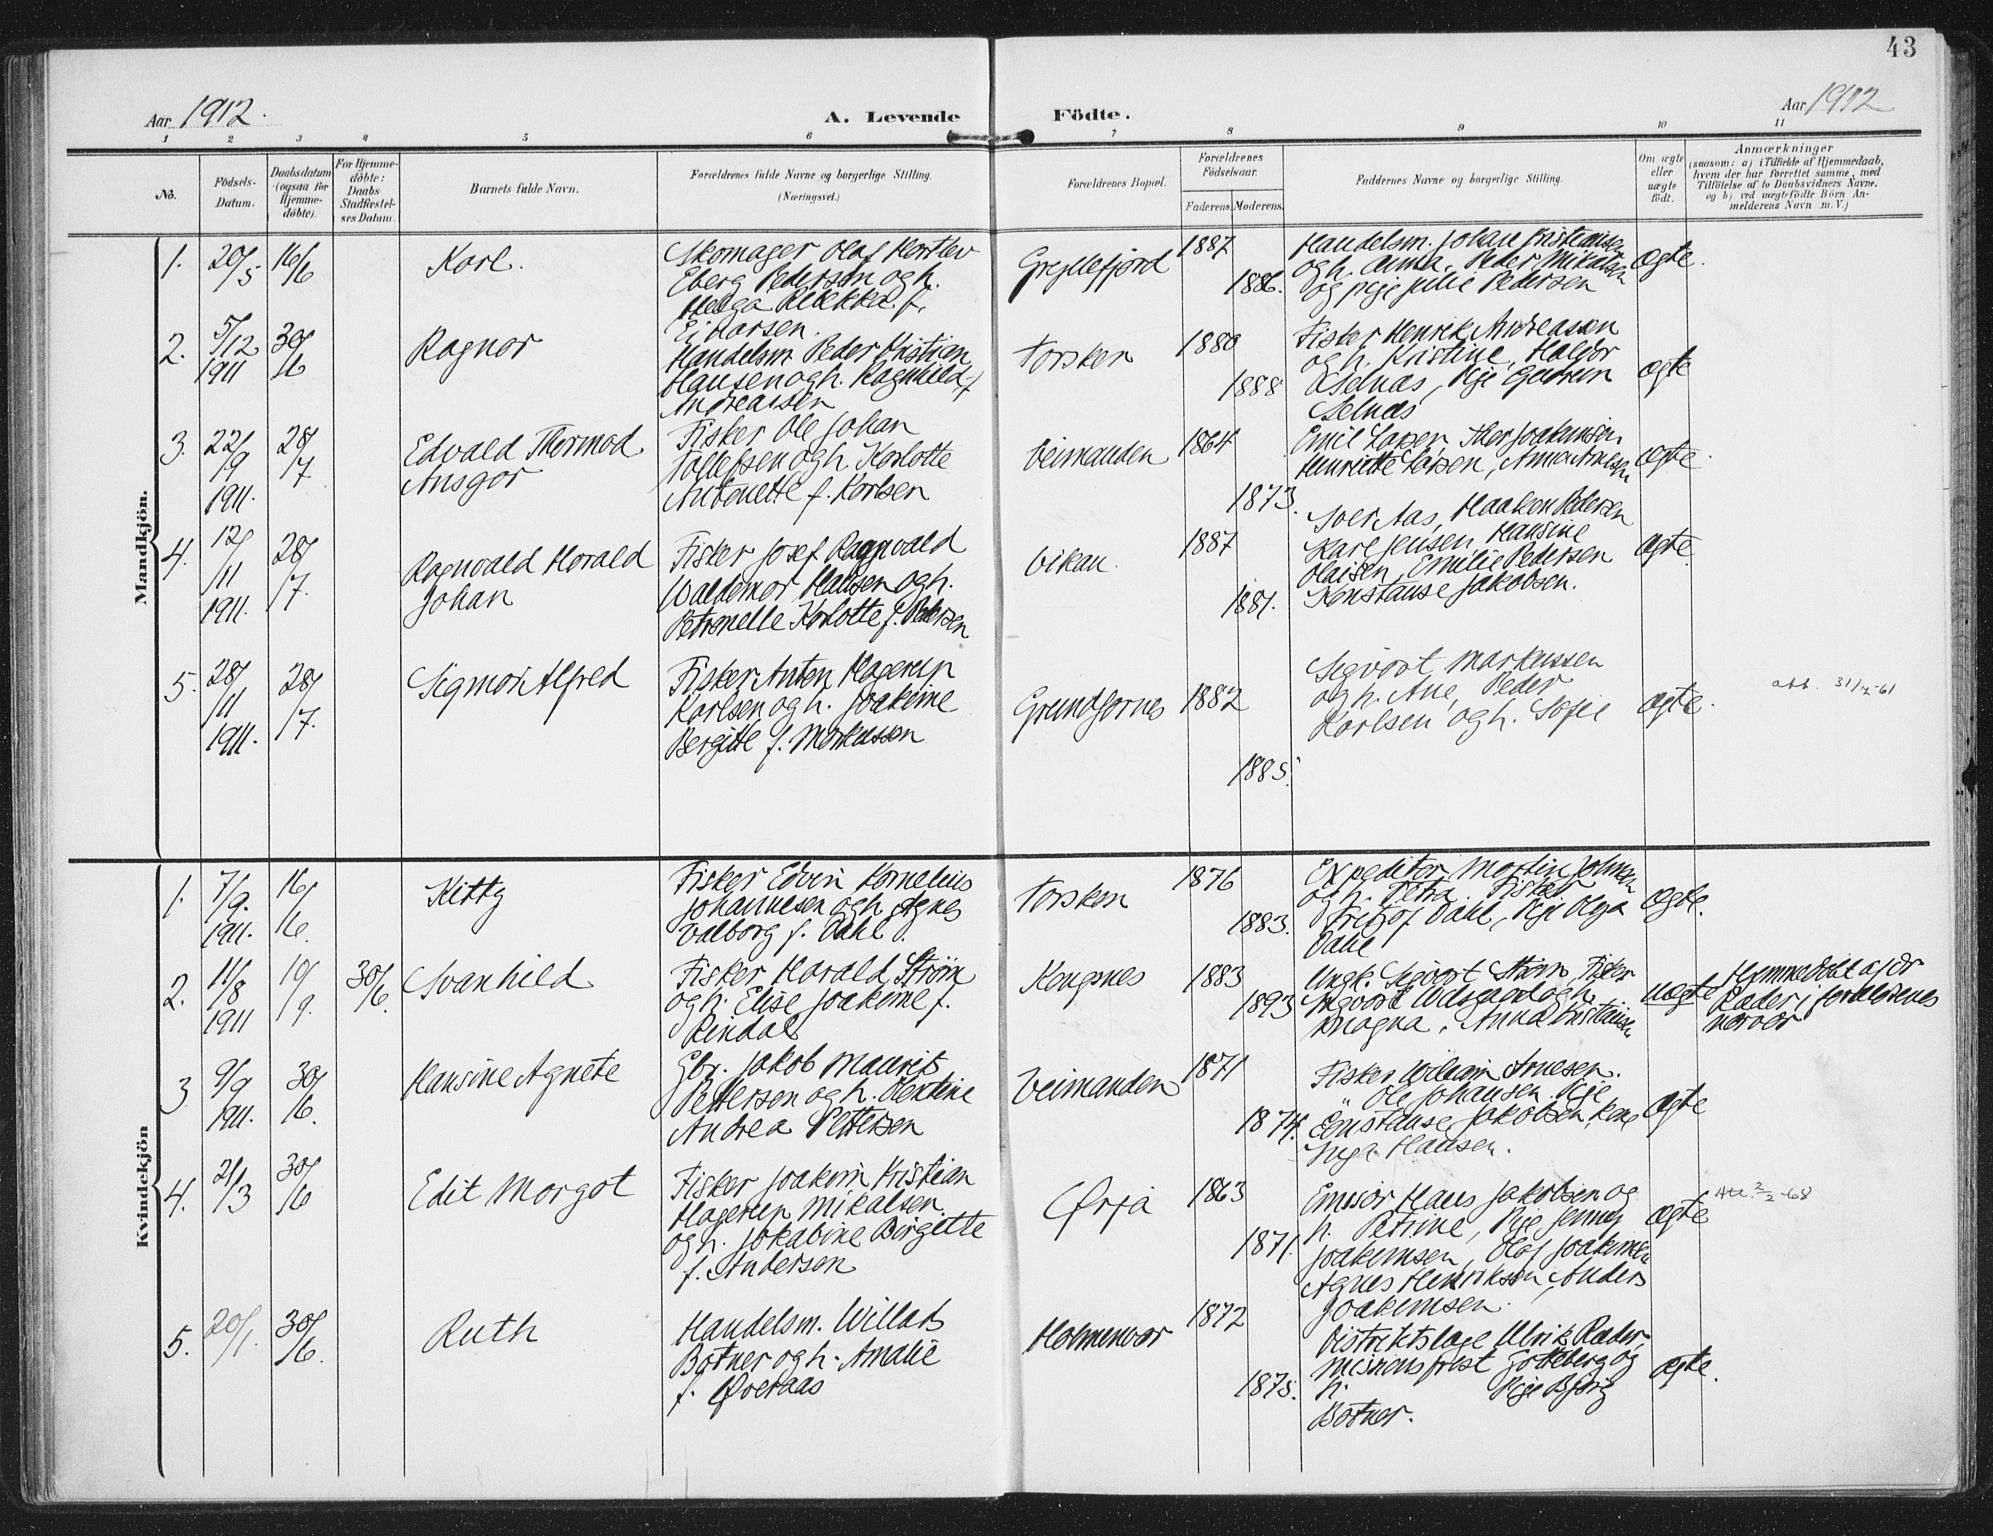 43
Aar 1912.
A. Levende Födte.
Aar 1912
1 2 3 4 5 6 7 8 9 10 11
No.
Födsels-
Datum.
Daabsdatum
(ogsaa for
Hjemme-
döbte).
For Hjemme-
döbte:
Daabs-
Stadfæstel-
ses Datum.
Barnets fulde Navn.
Forældrenes fulde Navne og borgerlige Stilling.
(Næringsvei.)
Forældrenes Bopæl.
Forældrenes
Födselsaar.
Faderens. Moderens.
Faddernes Navne og borgerlige Stilling.
Om ægte
eller
uægte
födt.
Anmærkninger
(saasom: a) i Tilfælde af Hjemmedaab,
hvem der har forrettet samme, med
Tilföielse af to Daabsvidners Navne,
og b) ved uægtefödte Börn An-
melderens Navn m. V.)
Mandkjön.
1. 20/5 16/6
Karl.
Skomager Olaf
Eberg Pedersen og h.
Helga f.
Ejdarsen.
Gryllefjord
1887
1886.
Handelsm. Johan Kristiansen
og h. Anna, Peder Mikalsen
og pige Julie Pedersen
ægte.
2. 5/12 1911 30/6
Ragnar
Handelsm. Peder Kristian
Hansen og h. Ragnhild f.
Andreassen
Torsken
1880
1888
Fisker Henrik Andreassen
og h. Kristine, Haldor
Selnæs, Pige Gudrun
Selnæs
ægte
3. 22/9 1911. 28/7
Edvald Thormod
Ansgar
Fisker Ole Johan
Tollefsen og h. Karlotte
Antonette f. Karlsen
Veimanden
1864
1873.
Emil Larsen, Joakimsen
Henriette Larsen, Anna Arnesen
ægte.
4. 12/11 1911. 28/7.
Ragnvald Harald
Johan
Fisker Josef Ragnvald
Waldemar Hansen og h.
Petronelle Karlotte f. Pedersen
Vikan.
1887
1887.
Aas, Haakon Pedersen
Karl Jensen, Hansine
Olaisen, Emilie Pedersen
Konstanse Jakobsen.
ægte.
5. 28/11 1911. 28/7.
Sigmar Alfred
Fisker Anton Hagerup
Karlsen og h. Joakime
Bergitte f. Markussen
Grundfarnes
1882
1885.
Sigvart Markussen
og h. Ane, Peder
Karlsen og h. Sofie
ægte.
att. 31/7-61
Kvindekjön
1. 7/9. 1911. 16/6.
Kitty
Fisker Edvin Kornelius
Johannesen og h. Agnes
Valborg f. Dahl.
Torsken
1876
1883.
Expeditør Martin Johnsen
og h. Petra, Fisker
Fritjof Dahl, Pige Olga
Dahl
ægte.
2. 11/8 1911 10/9. 30/6.
Svanhild
Fisker Harald Strøm
og h. Elise Joakime f.
Rindal
Kongsnes
1883
1893
Ungk. Sigvart Strøm, Fisker
Sigvart og h.
Magna, Anna Kristiansen
uægte
Hjemmedøbt af dr
Ræder, forældrenes
nærvær
3. 9/9 1911. 30/6.
Hansine Agnete
Gbr. Jakob Maurits
Pettersen og h. Hentine
Andrea Pettersen
Veimanden
1871
1874.
Fisker William Arnesen.
" Ole Johansen, Pige
Constanse Jakobsen, kone
Inga Hansen.
ægte
4. 21/3 30/6
Edit Margot
Fisker Joakim Kristian
Hagerup Mikalsen
og h. Jokabine Birgitte
f. Andersen
Ørja
1863
1871.
Emisær Hans Jakobsen og
h. Petrine, Pige Jenny
Joakimsen, Olaf Joakimsen
Agnes Henriksen, Anders
Joakimsen.
ægte
Att. 2/2-68
5. 20/1. 30/6.
Ruth
Handelsm. Willads
Botner og h. Amalie
f. Overaas
Holmenvær
1872
1875.
Distriktslæge Ulrik Ræder,
Missionsprest Gotteberg og
h. Pige Bjørg
Botner.
ægte.